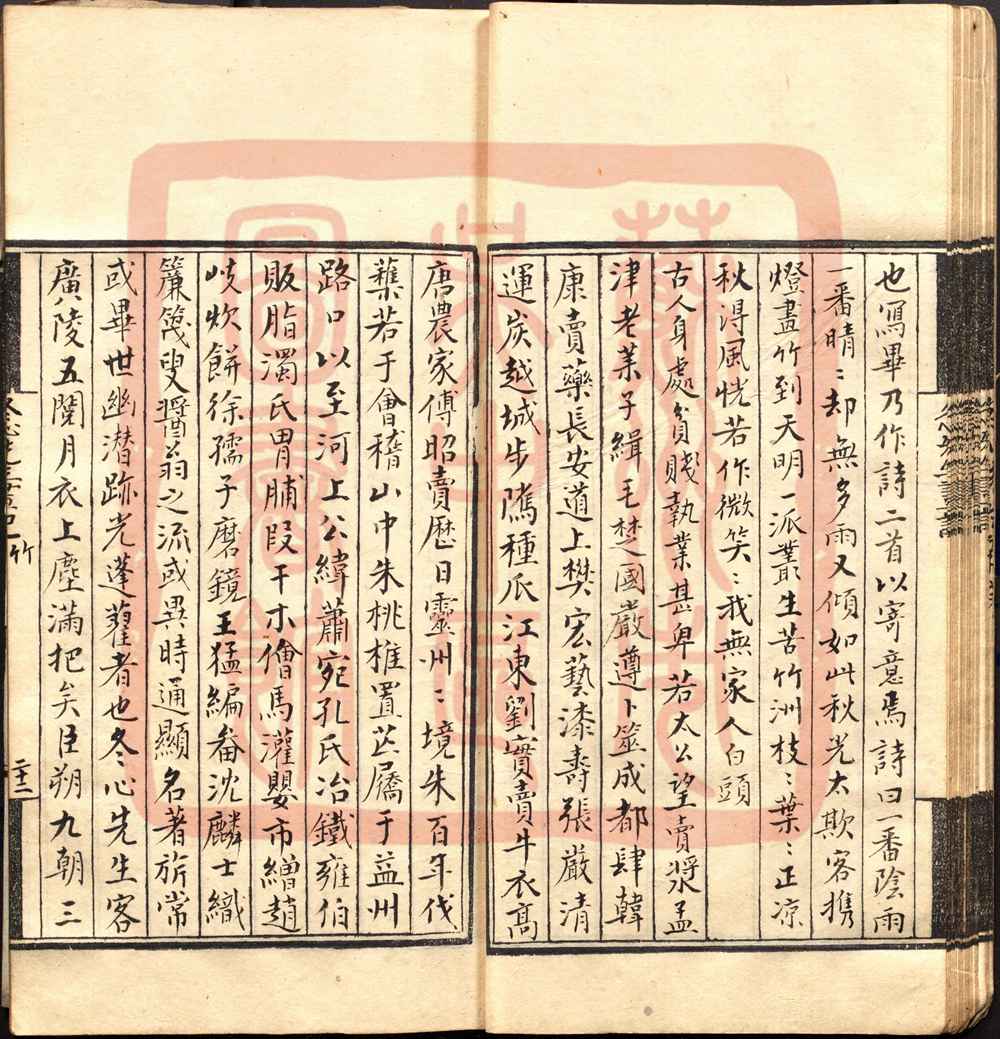 也寫畢乃作詩二首以寄意焉詩曰一番陰雨
一番晴〻却無多雨又傾如此秋光太欺客攜
燈畫竹到天明一派叢生苦竹洲枝〻葉〻正凉
秋淂風恍若作微笑〻我無家人白頭
古人身處貧賤執業甚卑若太公望賣漿孟
津老萊子緝毛楚國嚴遵卜筮成都肆韓
康賣藥長安道上樊宏藝漆壽張嚴清
運炭越城步隲種瓜江東劉實賣牛衣高
唐農家傅昭賣歷日靈州〻境朱百年伐
蕉若于會稽山中朱桃椎置芒屩于益州
路口以至河上公緯蕭宛孔氏冶鐵雍伯
販脂濁氏胃脯段干木儈馬灌嬰市繒趙
岐炊餅徐孺子磨鏡王猛編畚沈麟士織
簾篾叟醬翁之流或異時通顯名著旂常
或畢世幽潛跡光蓬藋者也冬心先生客
廣陵五閱月衣上塵滿把矣臣朔九朝三
竹
二十二